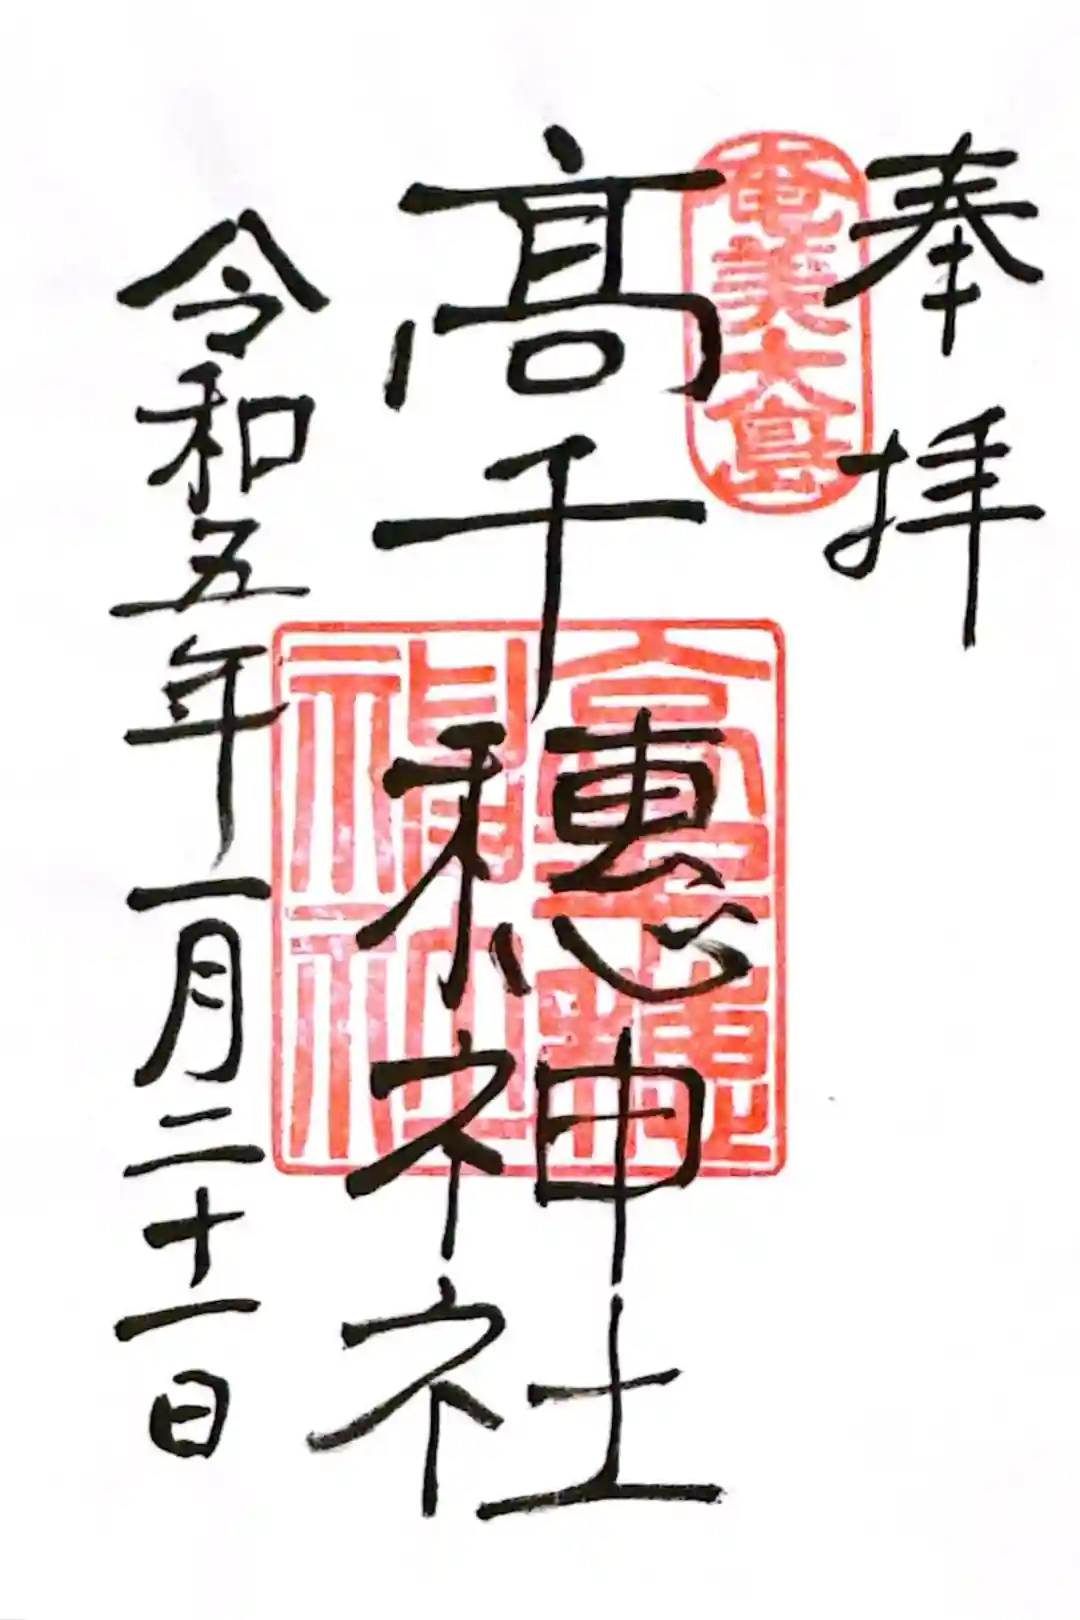 奉拝
奄美大島
髙千穂神社
高千穂神社
令和五年一月二十一日